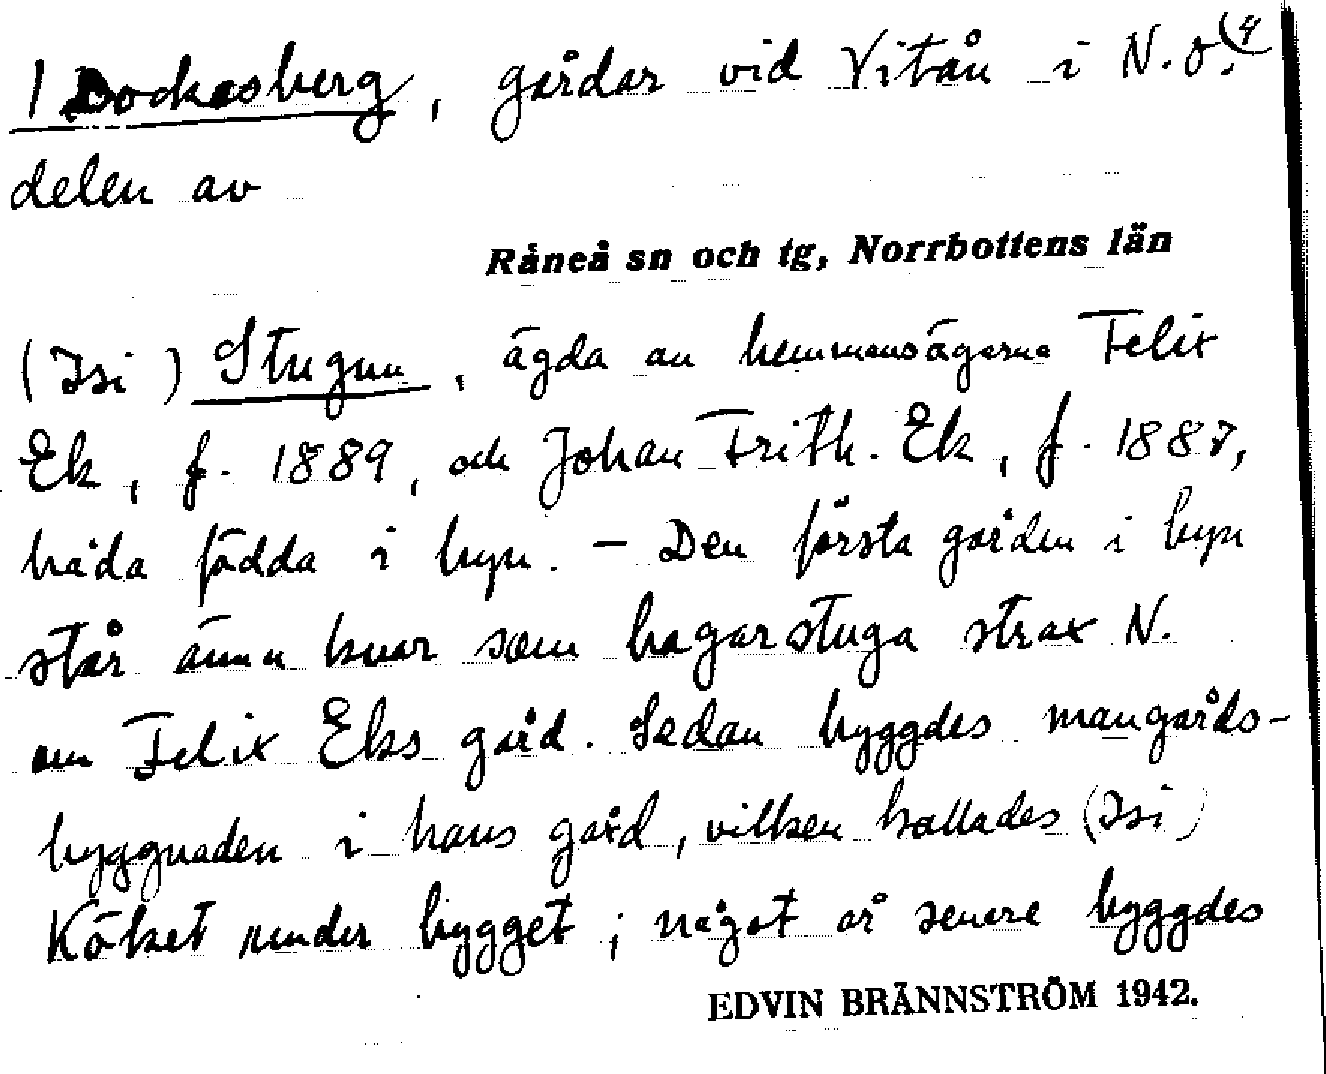 1 Dockasberg, gårdar vid Vitån i N.O. (4
delen av
Råneå sn och tg, Norrbottens län
(Isi) Stugun, ägda av hemmansägarna Felix
Ek, f. 1889, och Johan Frith. Ek, f. 1887,
båda födda i byn. – Den första gården i byn
står ännu kvar som bagarstuga strax N.
om Felix Eks gård. Sedan byggdes mangårds-
byggnaden i hans gård, vilken kallades (Isi)
Köket under bygget; något år senare byggdes
EDVIN BRÄNNSTRÖM 1942.